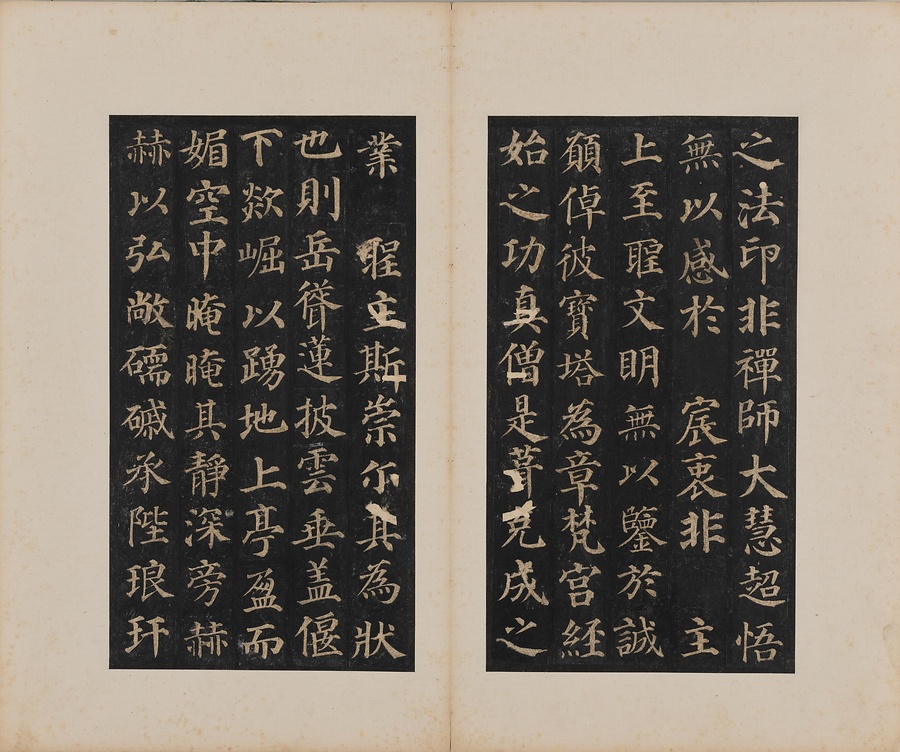 之法印非禪師大慧超悟
無以感於 宸衷非 主
上至聖文明無以鑒於誠
願倬彼寶塔為章梵宮經
始之功真僧是葺克成之
業 聖主斯崇尒其為狀
也則岳聳蓮披雲垂盖偃
下欻崛以踴地上亭盈而
媚空中晻晻其靜深旁赫
赫以弘敞礝磩承陛琅玕